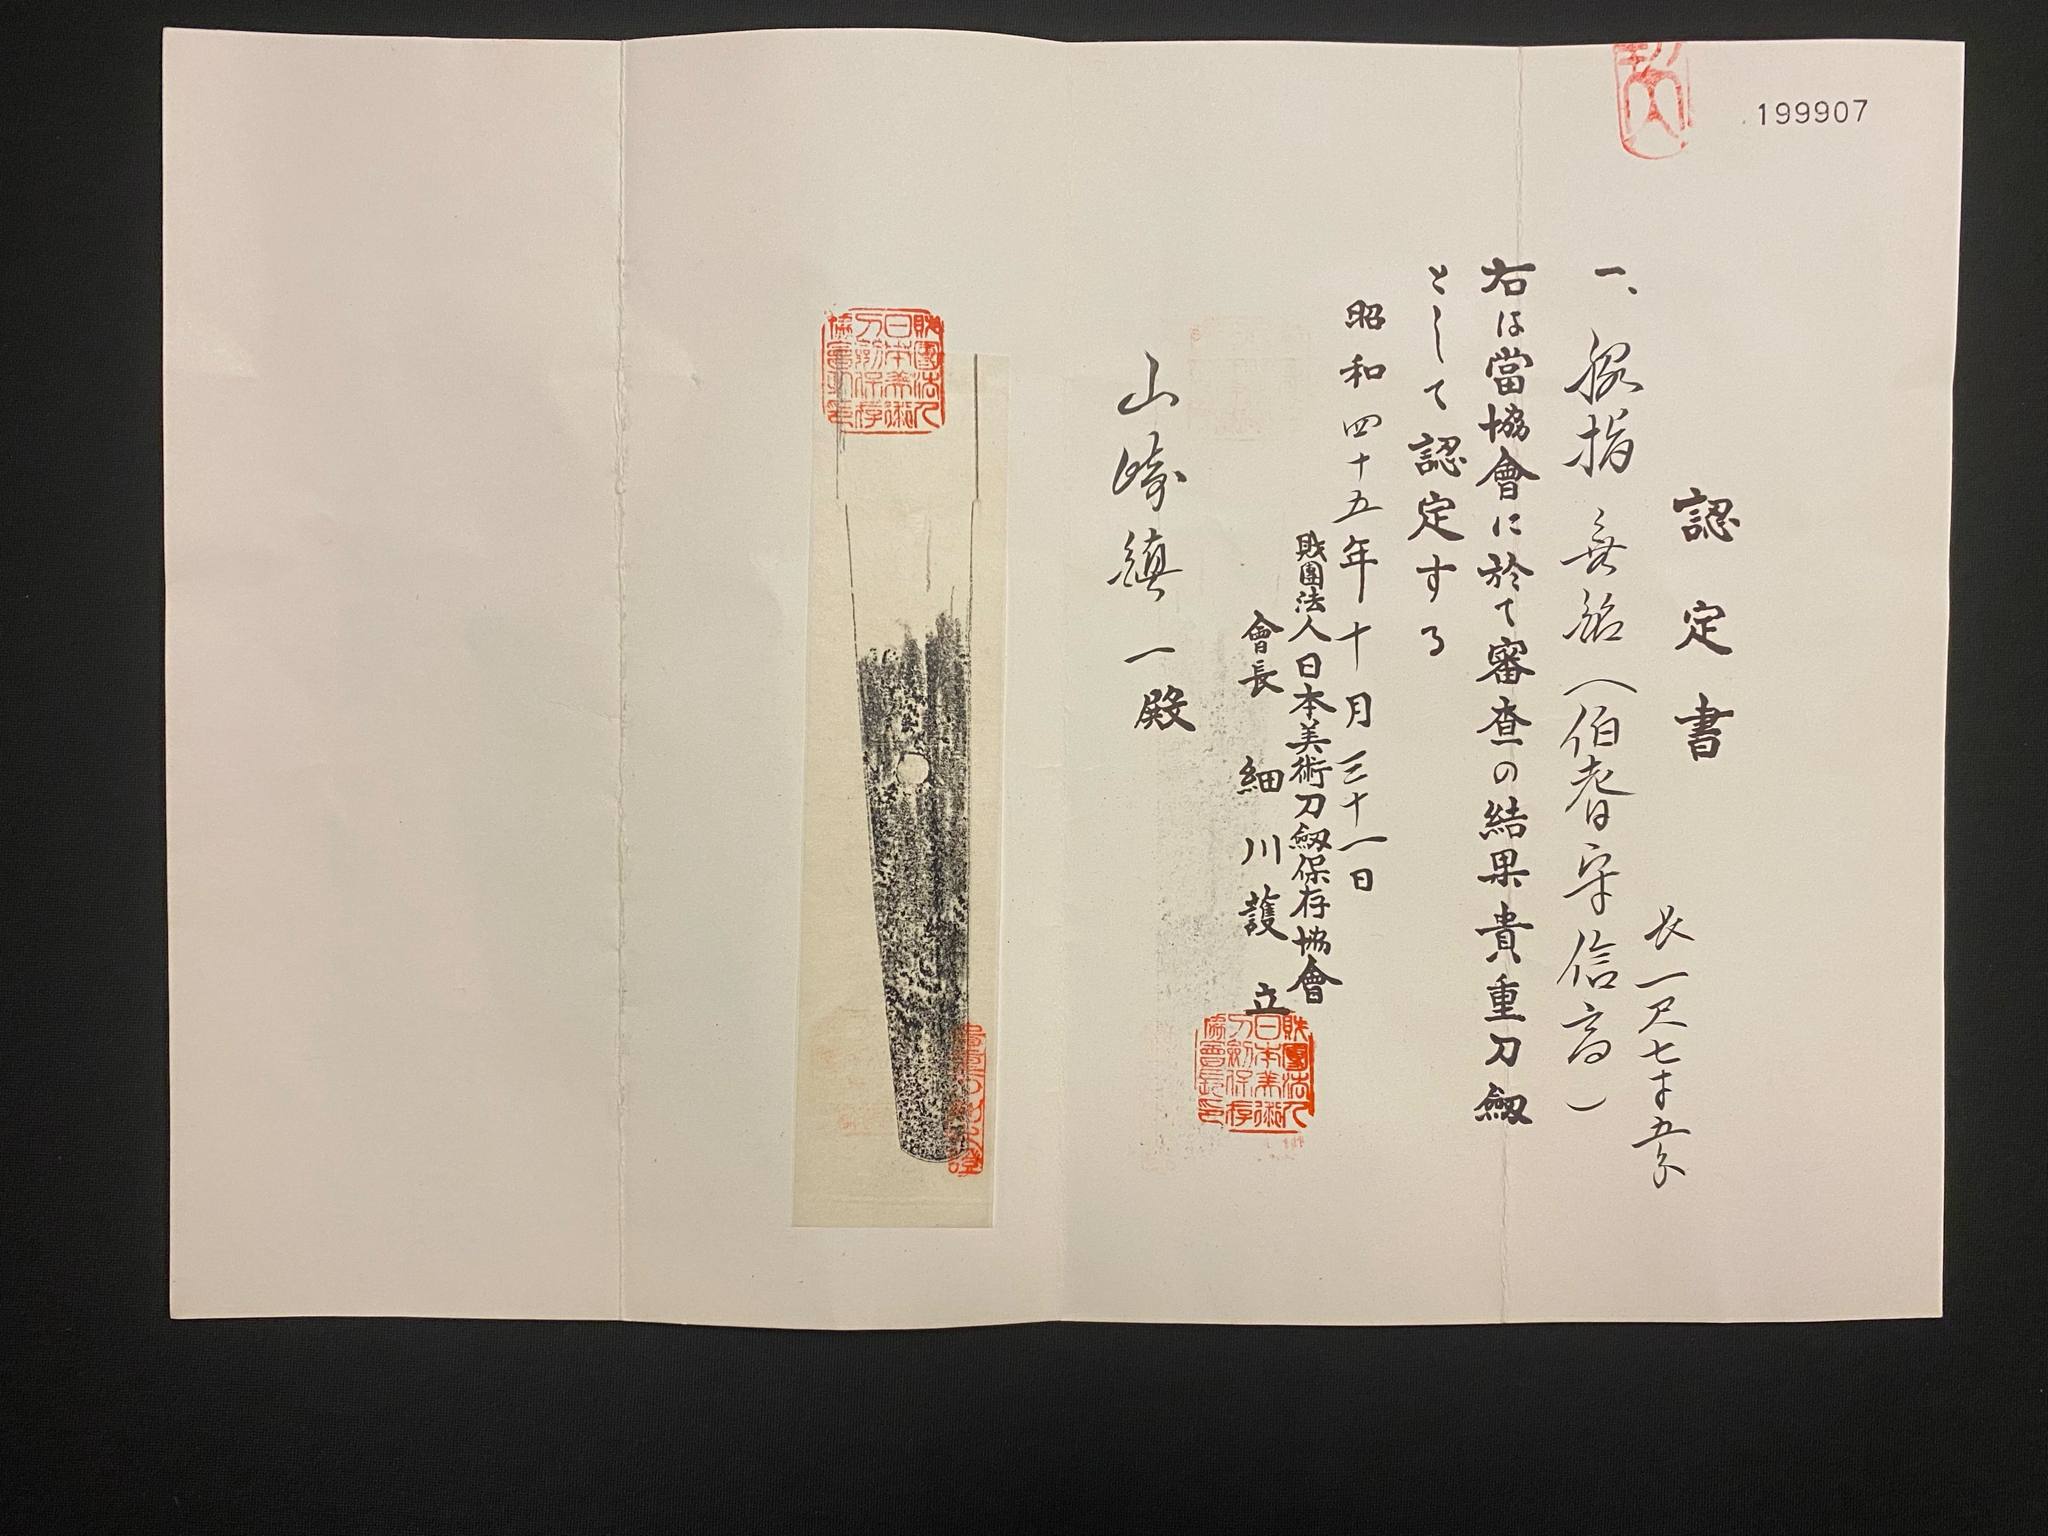 199907
認定書
長一尺七寸五分
一、脇指 無銘(伯耆守信高)
右は當協會に於て審査の結果貴重刀劔
として認定する
昭和四十五年十月三十一日
財團法人日本美術刀劔保存協會
會長 細川護立
財團法人日本美術刀劔保存協會長印
山崎鎮一殿